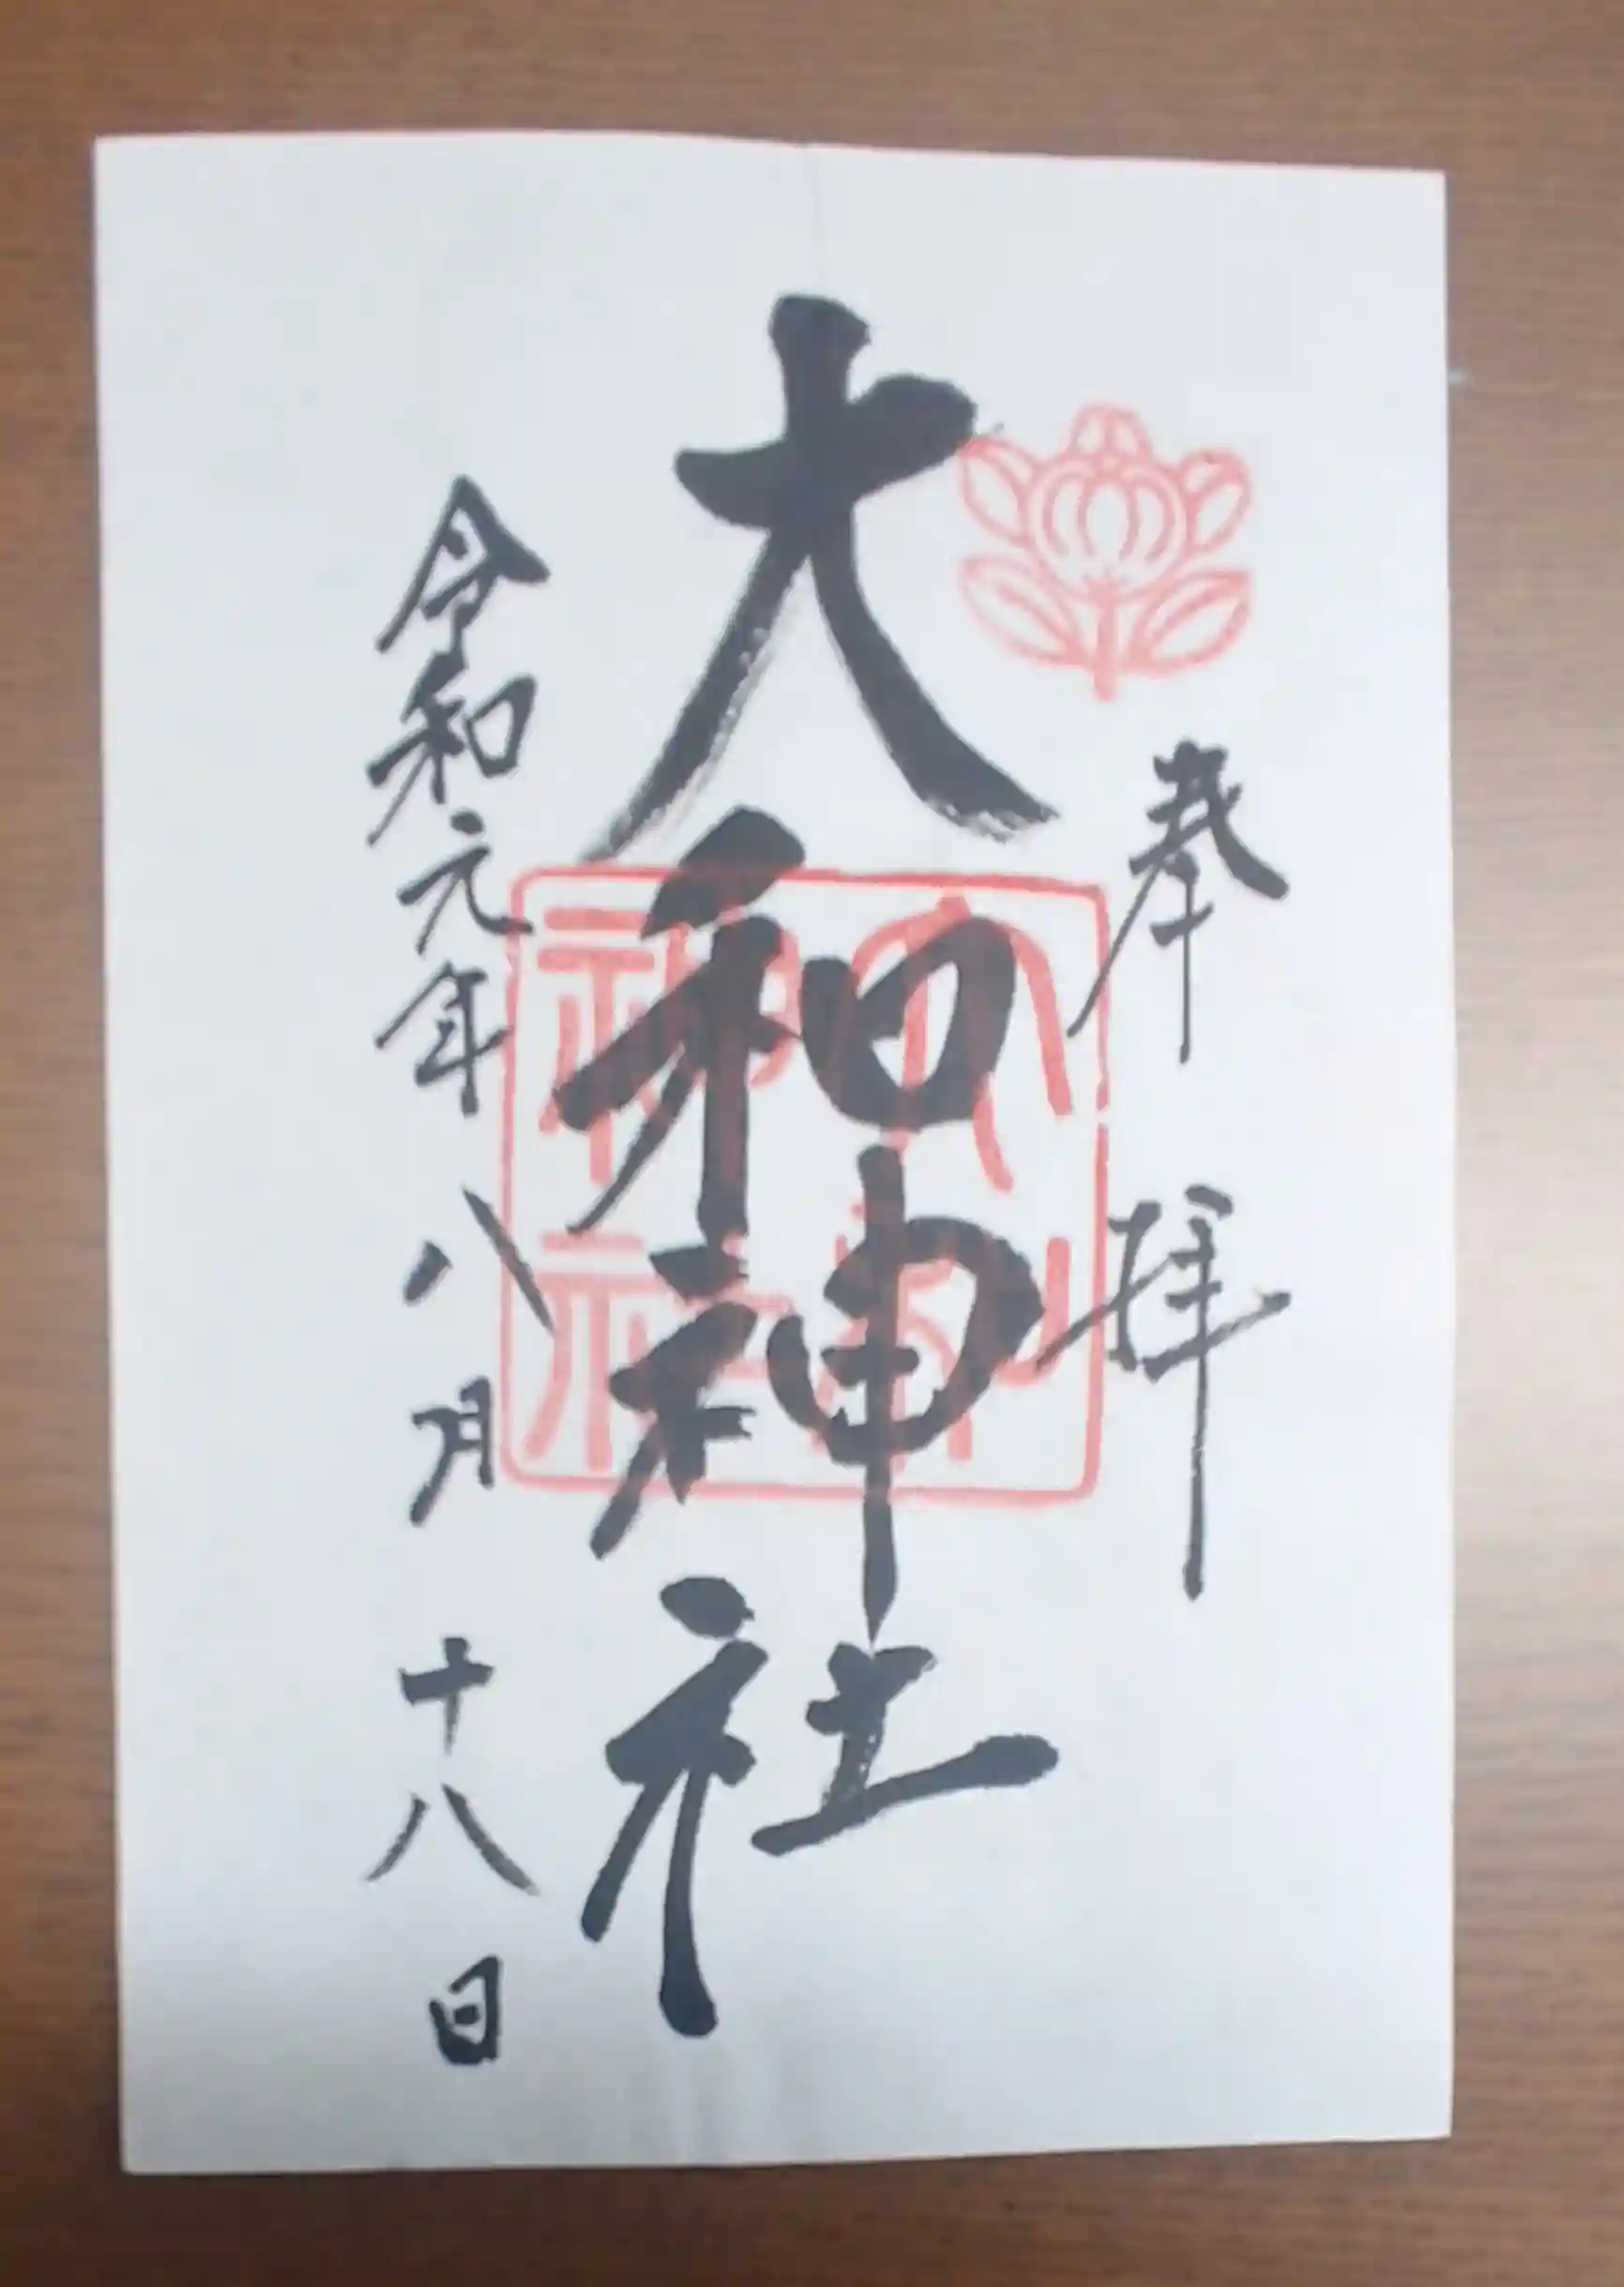 奉拝
大和神社
大和神社
令和元年八月十八日